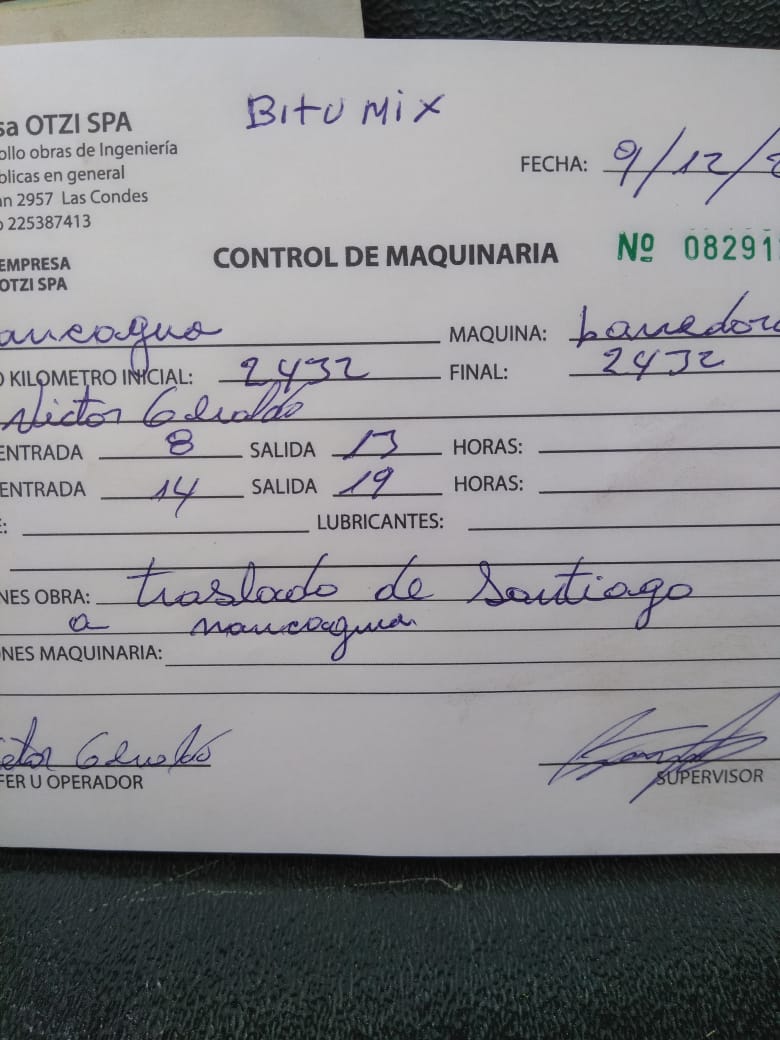 BITUMIX
sa OTZI SPA
ollo obras de Ingeniería
blicas en general
an 2957 Las Condes
o 225387413
FECHA: 9/12/2
EMPRESA
OTZI SPA
CONTROL DE MAQUINARIA
Nº 08291
ancagua MAQUINA: barredora
O KILOMETRO INICIAL: 2432 FINAL: 2432
Victor
ENTRADA 8 SALIDA 13 HORAS:
ENTRADA 14 SALIDA 19 HORAS:
E: LUBRICANTES:
NES OBRA: traslado de Santiago
a nancagua
ONES MAQUINARIA:
ctor
FER U OPERADOR
SUPERVISOR